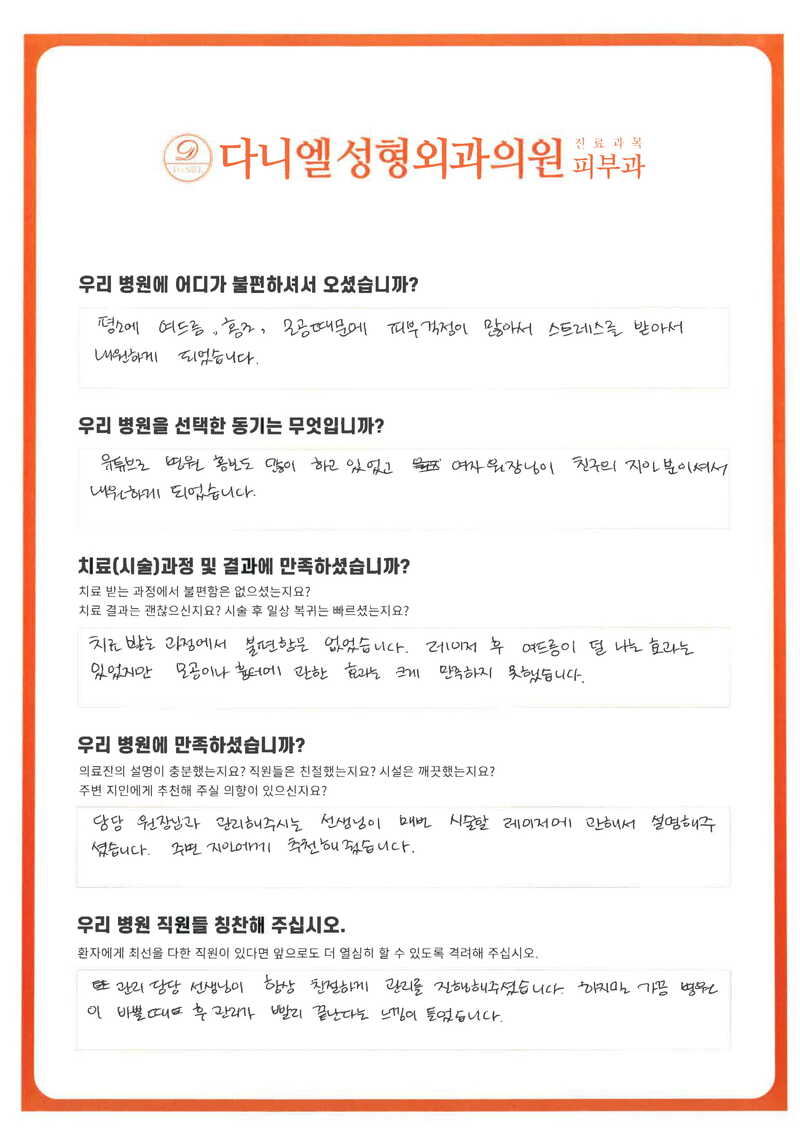 다니엘성형외과의원
진료과목
피부과
우리 병원에 어디가 불편하셔서 오셨습니까?
평소에 여드름, 홍조, 모공때문에 피부걱정이 많아서 스트레스를 받아서
내원하게 되었습니다.
우리 병원을 선택한 동기는 무엇입니까?
유튜브로 병원 홍보도 많이 하고 있었고 여자 원장님이 친구의 지인분이셔서
내원하게 되었습니다.
치료(시술)과정 및 결과에 만족하셨습니까?
치료 받는 과정에서 불편함은 없으셨는지요?
치료 결과는 괜찮으신지요? 시술 후 일상 복귀는 빠르셨는지요?
치료 받는 과정에서 불편함은 없었습니다. 레이저 후 여드름이 덜 나는 효과는
있었지만 모공이나 흉터에 관한 효과는 크게 만족하지 못했습니다.
우리 병원에 만족하셨습니까?
의료진의 설명이 충분했는지요? 직원들은 친절했는지요? 시설은 깨끗했는지요?
주변 지인에게 추천해 주실 의향이 있으신지요?
담당 원장님과 관리해주시는 선생님이 매번 시술할 레이저에 관해서 설명해주
셨습니다. 주변 지인에게 추천해 줬습니다.
우리 병원 직원들 칭찬해 주십시오.
환자에게 최선을 다한 직원이 있다면 앞으로도 더 열심히 할 수 있도록 격려해 주십시오.
관리 담당 선생님이 항상 친절하게 관리를 진행해주셨습니다. 하지만 가끔 병원
이 바쁠때 후관리가 빨리 끝난다는 느낌이 들었습니다.